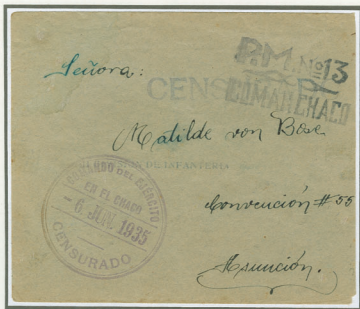 P.M. Nº 13
COMANCHACO
CENS
Señora:
Matilde von Bose
DE INFANTERIA
Convención # 55
Asunción.
COMANDO DEL EJERCITO
EN EL CHACO
- 6 JUN. 1935
CENSURADO